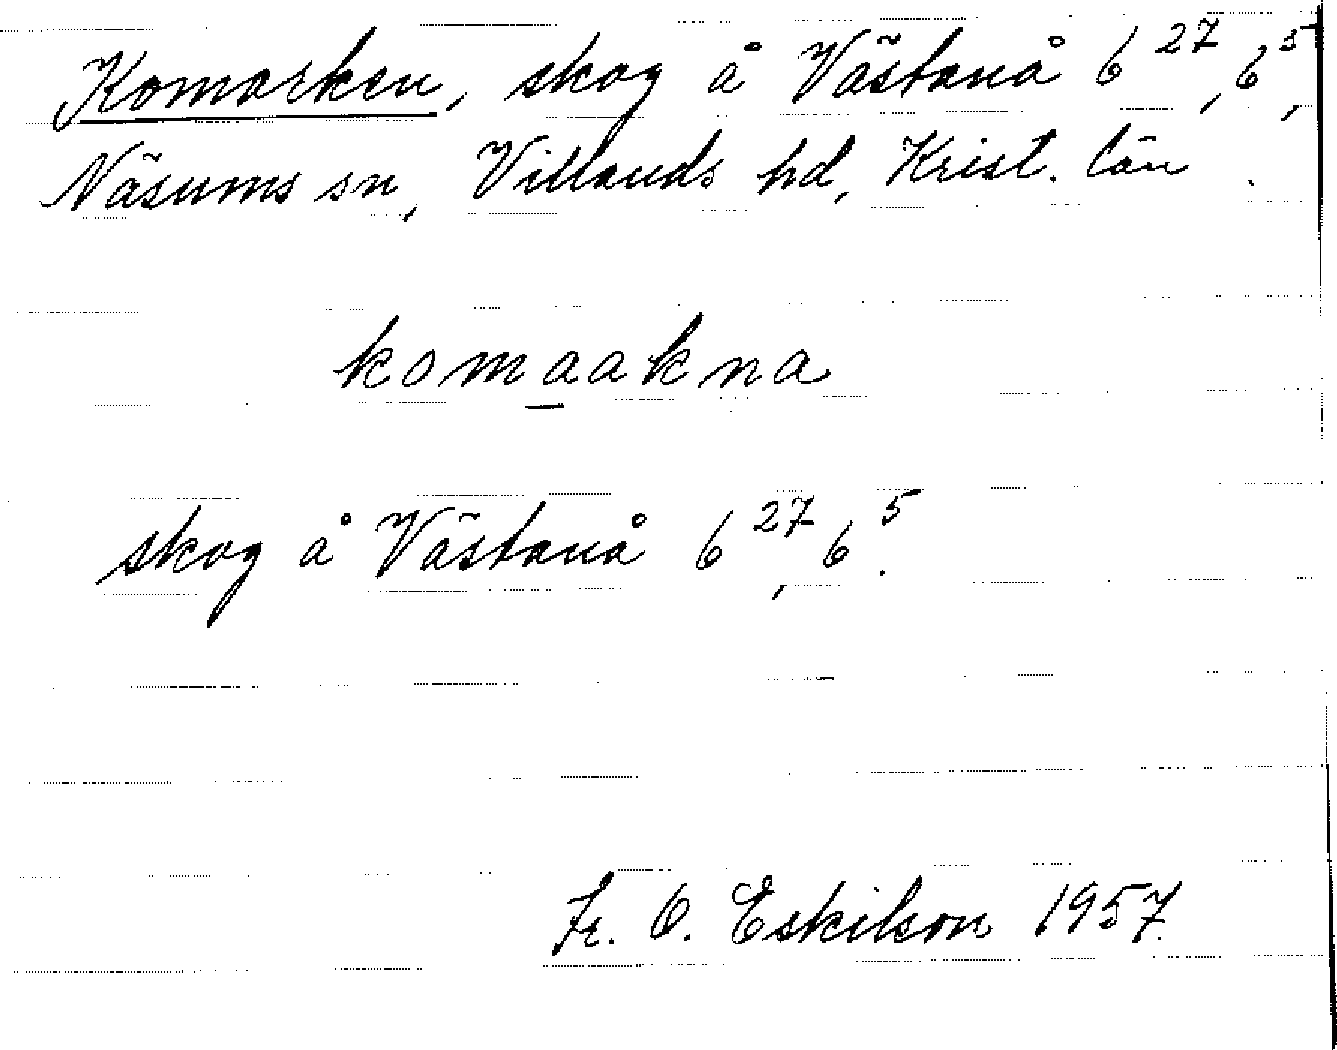 Komarken, skog å Västanå 6²⁷, 6⁵,
Näsums sn, Villands hd, Krist. län.
komaakna
skog å Västanå 6²⁷, 6⁵.
Fr. O. Eskilson 1957.